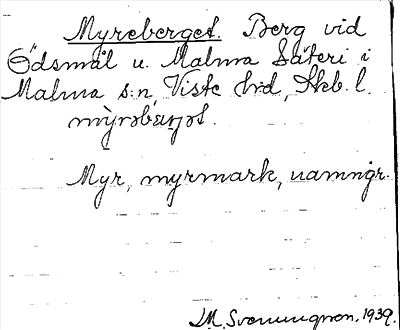 Myreberget. Berg vid
Ödsmål u. Malma Säteri i
Malma s:n, Viste hrd, Skb. l.
myrobärjot.
Myr, myrmark, uamngr.
1939.